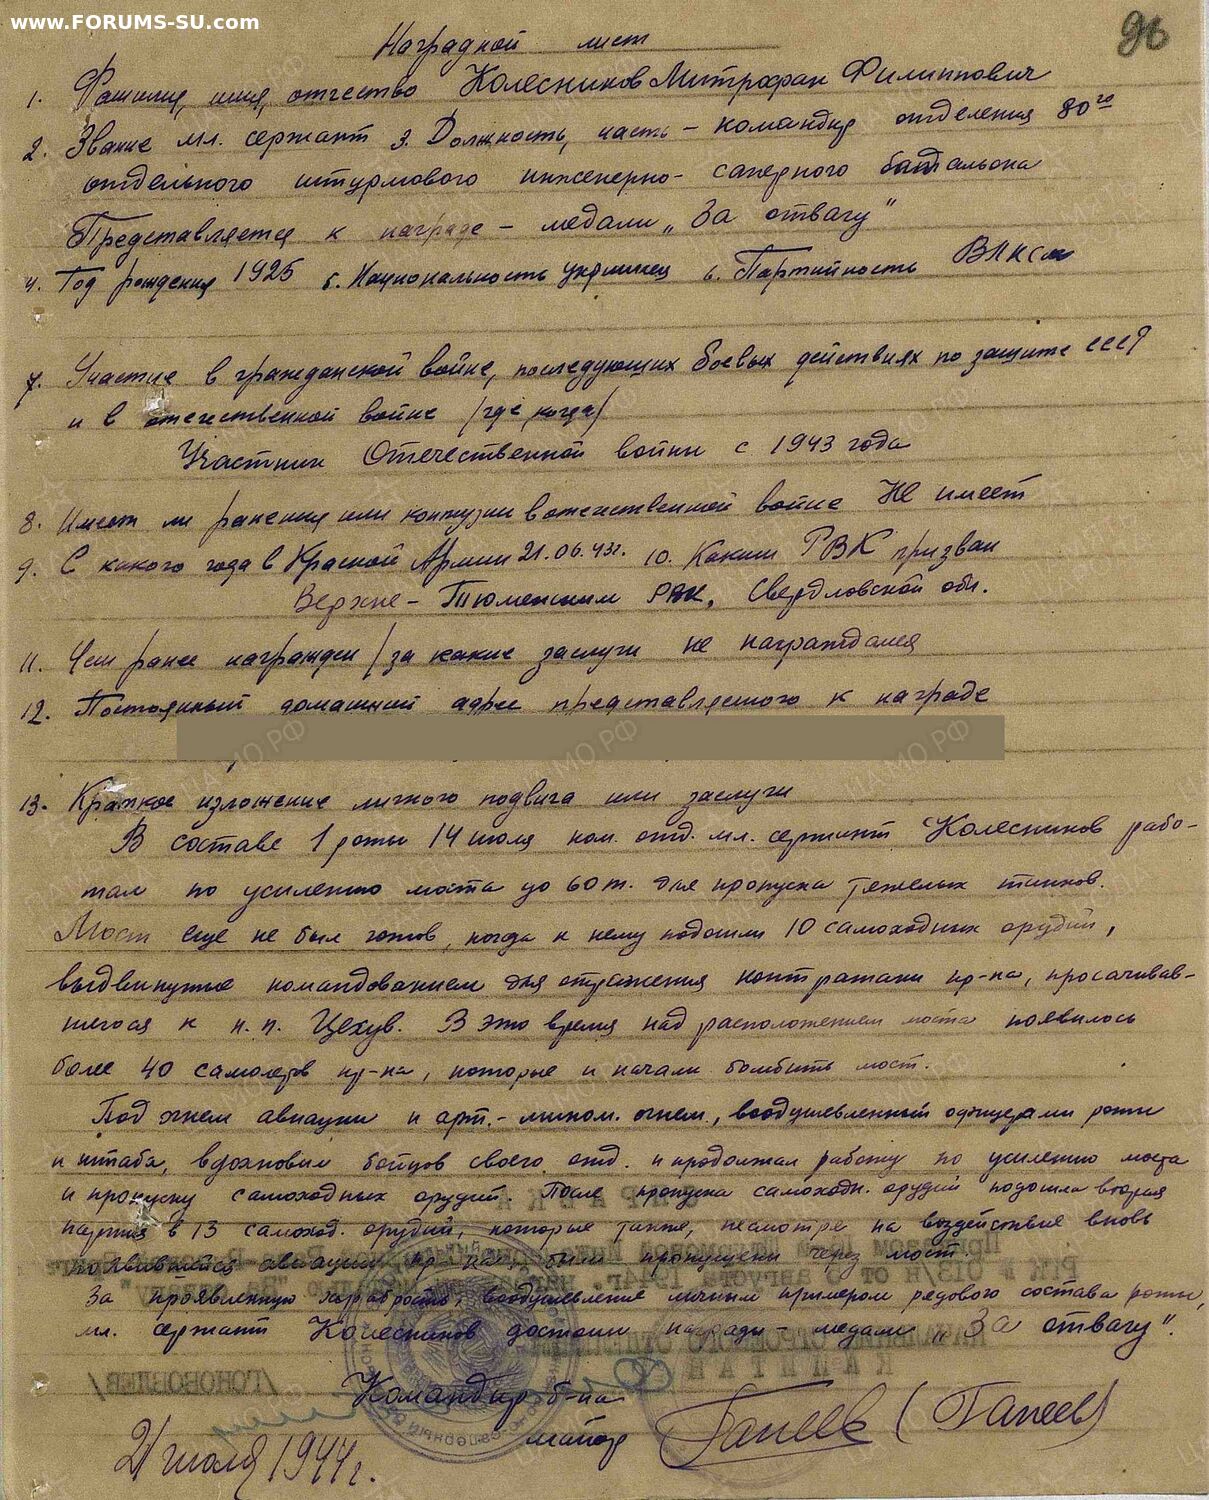 www.FORUMS-SU.com
96
Наградной лист
1. Фамилия, имя, отчество Колесников Митрофан Филиппович
2. Звание мл. сержант 3. Должность, часть - командир отделения 80го
отдельного штурмового инженерно- саперного батальона
Представляется к награде - медали „За отвагу"
4. Год рождения 1925 5. Национальность украинец 6. Партийность ВЛКСМ
7. Участие в гражданской войне, последующих боевых действиях по защите СССР
и в отечественной войне /где, когда/
Участник Отечественной войны с 1943 года
8. Имеет ли ранения или контузии в отечественной войне Не имеет
9. С какого года в Красной Армии 21.06.43г. 10. Каким РВК призван
Верхне - Тюменским РВК, Свердловской обл.
11. Чем ранее награжден /за какие заслуги не награждался
12. Постоянный домашний адрес представляемого к награде
13. Краткое изложение личного подвига или заслуги
В составе 1 роты 14 июля ком. отд. мл. сержант Колесников рабо-
тал по усилению моста до 60 т. для пропуска тяжелых танков.
Мост еще не был готов, когда к нему подошли 10 самоходных орудий,
выдвинутые командованием для отражения контратаки пр-ка, просачивав-
шегося к н.п. Цехув. В это время над расположением моста появилось
более 40 самолетов пр-ка, которые и начали бомбить мост.
Под огнем авиации и арт.- мином. огнем, воодушевленный офицерами роты
и штаба, вдохновил бойцов своего отд. и продолжал работу по усилению моста
и пропуску самоходных орудий. После пропуска самоходн. орудий подошла вторая
партия в 13 самоход. орудий, которые также, несмотря на воздействие вновь
появившейся авиации пр-ка, были пропущены через мост.
За проявленную храбрость, воодушевление личным примером рядового состава роты,
мл. сержант Колесников достоин награды - медали „За отвагу".
Командир б-на
майор Гапеев (Гапеев)
21 июля 1944 г.